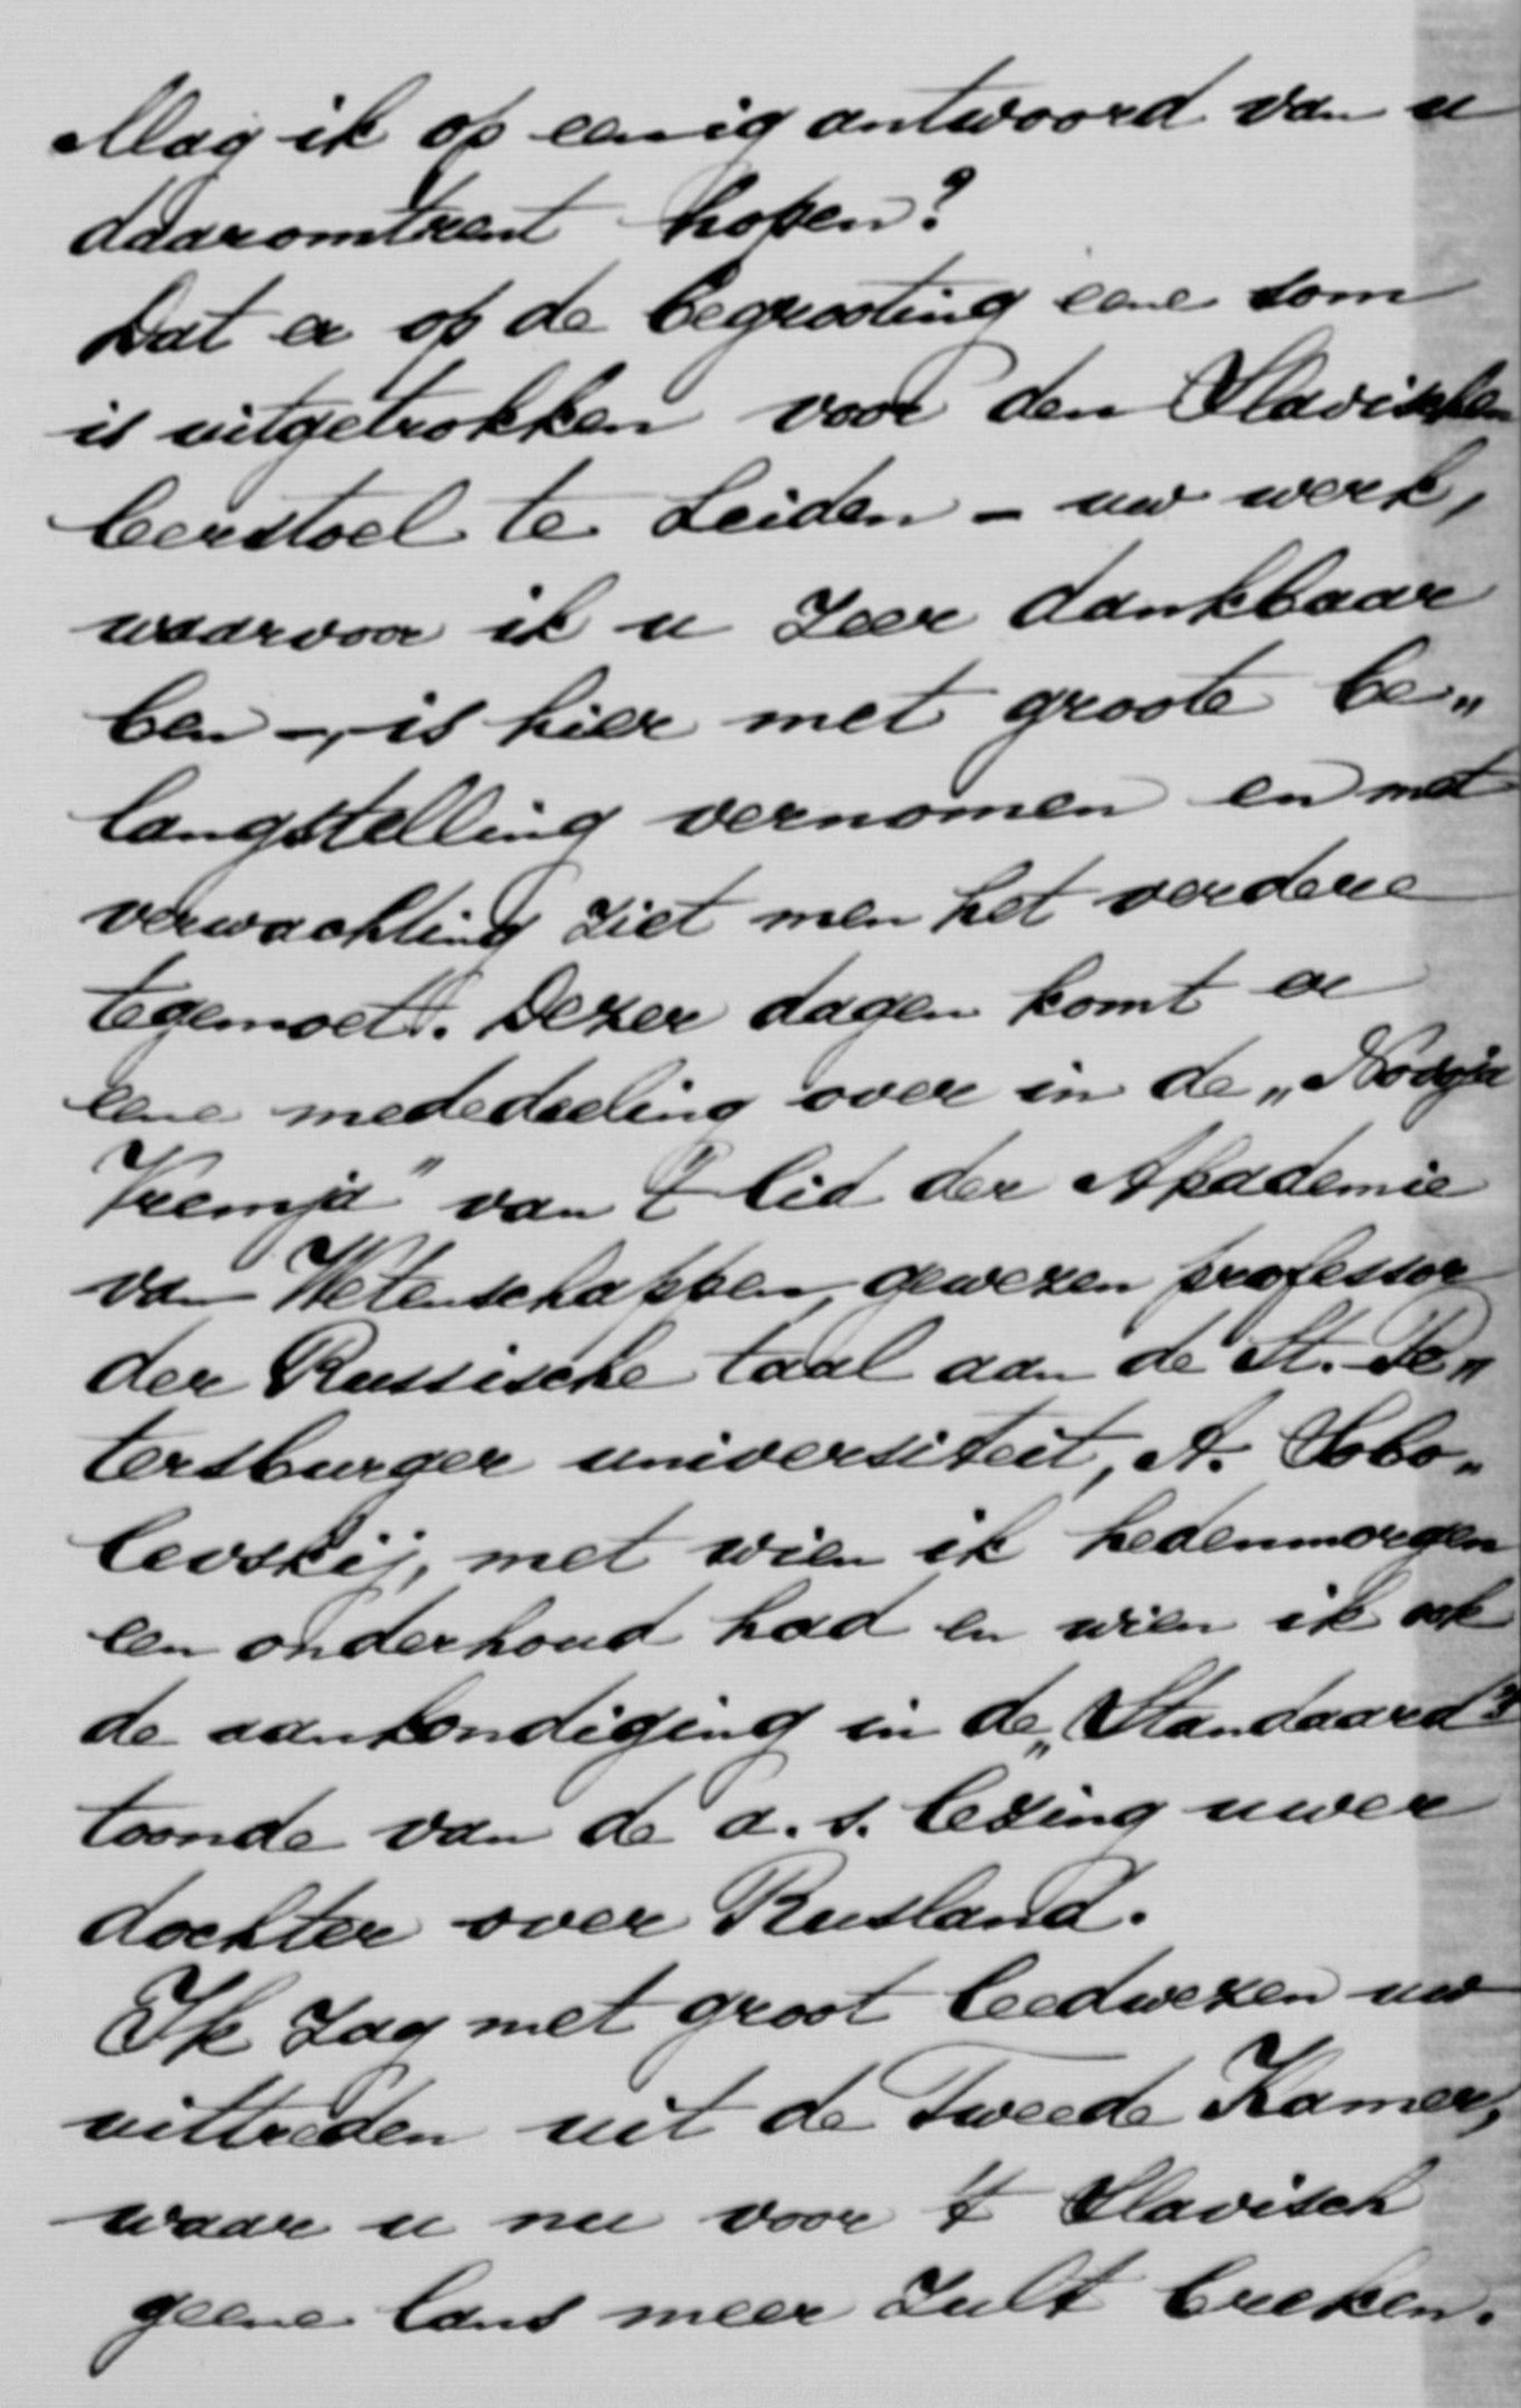 Mag ik op eenig antwoord van u
daaromtrent hopen?
Dat er op de begrooting eene som
is uitgetrokken voor den Slavischen
leerstoel te Leiden – uw werk,
waarvoor ik u zeer dankbaar
ben –, is hier met groote be„
langstelling vernomen en met
verwachting ziet men het verdere
tegemoet. Dezer dagen komt er
eene mededeeling over in de „Novoje
Vremja" van 't lid der Akademie
van Wetenschappen, gewezen professor
der Russische taal aan de St. Pe„
tersburger universiteit, A. Sobo„
levskij, met wien ik hedenmorgen
een onderhoud had en wien ik ook
de aankondiging in de „Standaard"
toonde van de a. s. lezing uwer
dochter over Rusland.
Ik zag met groot leedwezen uw
uittreden uit de Tweede Kamer,
waar u nu voor 't Slavisch
geene lans meer zult breken.